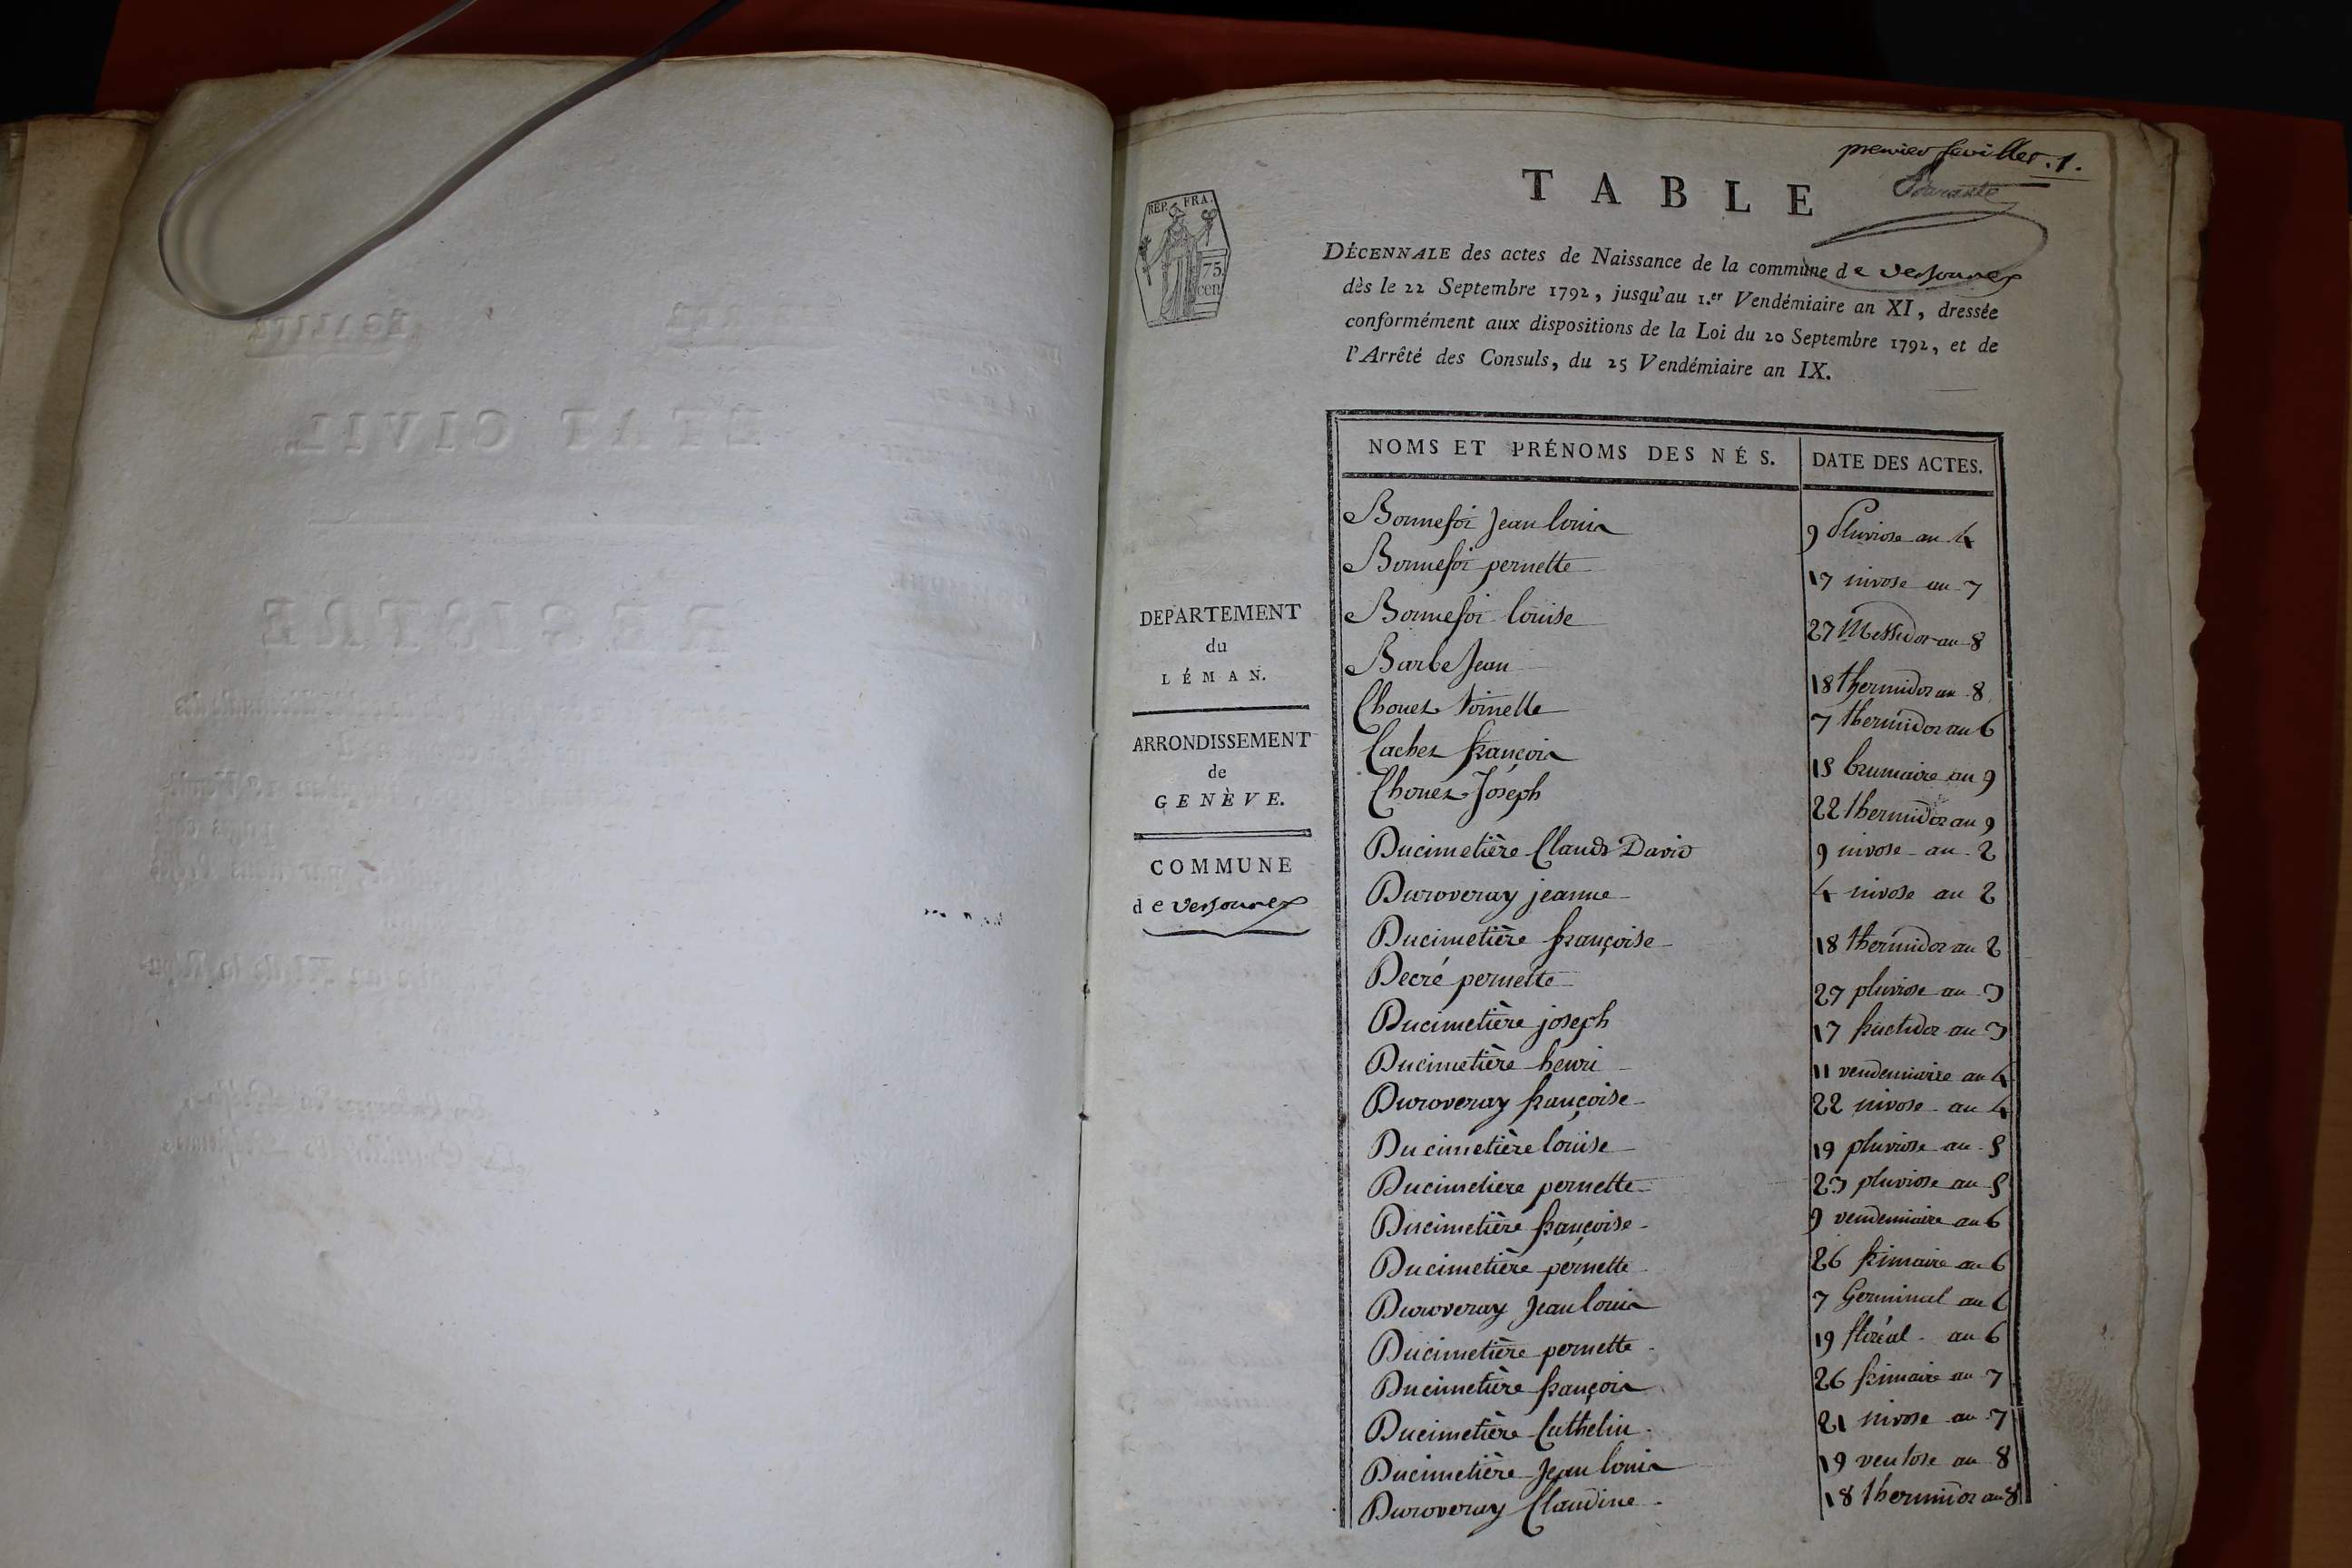 premier feuillet. 1.
TABLE
REP. FRA.
75
cen
DÉCENNALE des actes de Naissance de la commune de Versonnex
dès le 22 Septembre 1792, jusqu'au 1.er Vendémiaire an XI, dressée
conformément aux dispositions de la Loi du 20 Septembre 1792, et de
l'Arrêté des Consuls, du 25 Vendémiaire an IX.
DEPARTEMENT
du
LÉMAN.
ARRONDISSEMENT
de
GENÈVE.
COMMUNE
de Versonnex
NOMS ET PRÉNOMS DES NÉS. DATE DES ACTES.
Bonnefoi Jean louis 9 Pluviose an 4
Bonnefoi pernette 17 nivose an 7
Bonnefoi louise 27 Messidor an 8
Barbe Jean 18 thermidor an 8
Chouet toinette 7 thermidor an 6
Cachet françois 15 brumaire an 9
Chouet Joseph 22 thermidor an 9
Ducimetière Claude David 9 nivose an 2
Duroveray jeanne 4 nivose an 2
Ducimetière françoise 18 thermidor an 2
Decré pernette 27 pluviose an 3
Ducimetière joseph 17 fructidor an 3
Ducimetière henri 11 vendemiaire an 4
Duroveray françoise 22 nivose an 4
Ducimetière louise 19 pluviose an 5
Ducimetiere pernette 23 pluviose an 5
Ducimetière françoise 9 vendemiaire an 6
Ducimetière pernette 26 frimaire an 6
Duroveray Jean louis 7 Germinal an 6
Ducimetière pernette 19 floréal an 6
Ducimetière françois 26 frimaire an 7
Ducimetière Cathelin 21 nivose an 7
Ducimetière Jean louis 19 ventose an 8
Duroveray Claudine 18 thermidor an 8
ÉGALITÉ
ÉTAT CIVIL
REGISTRE